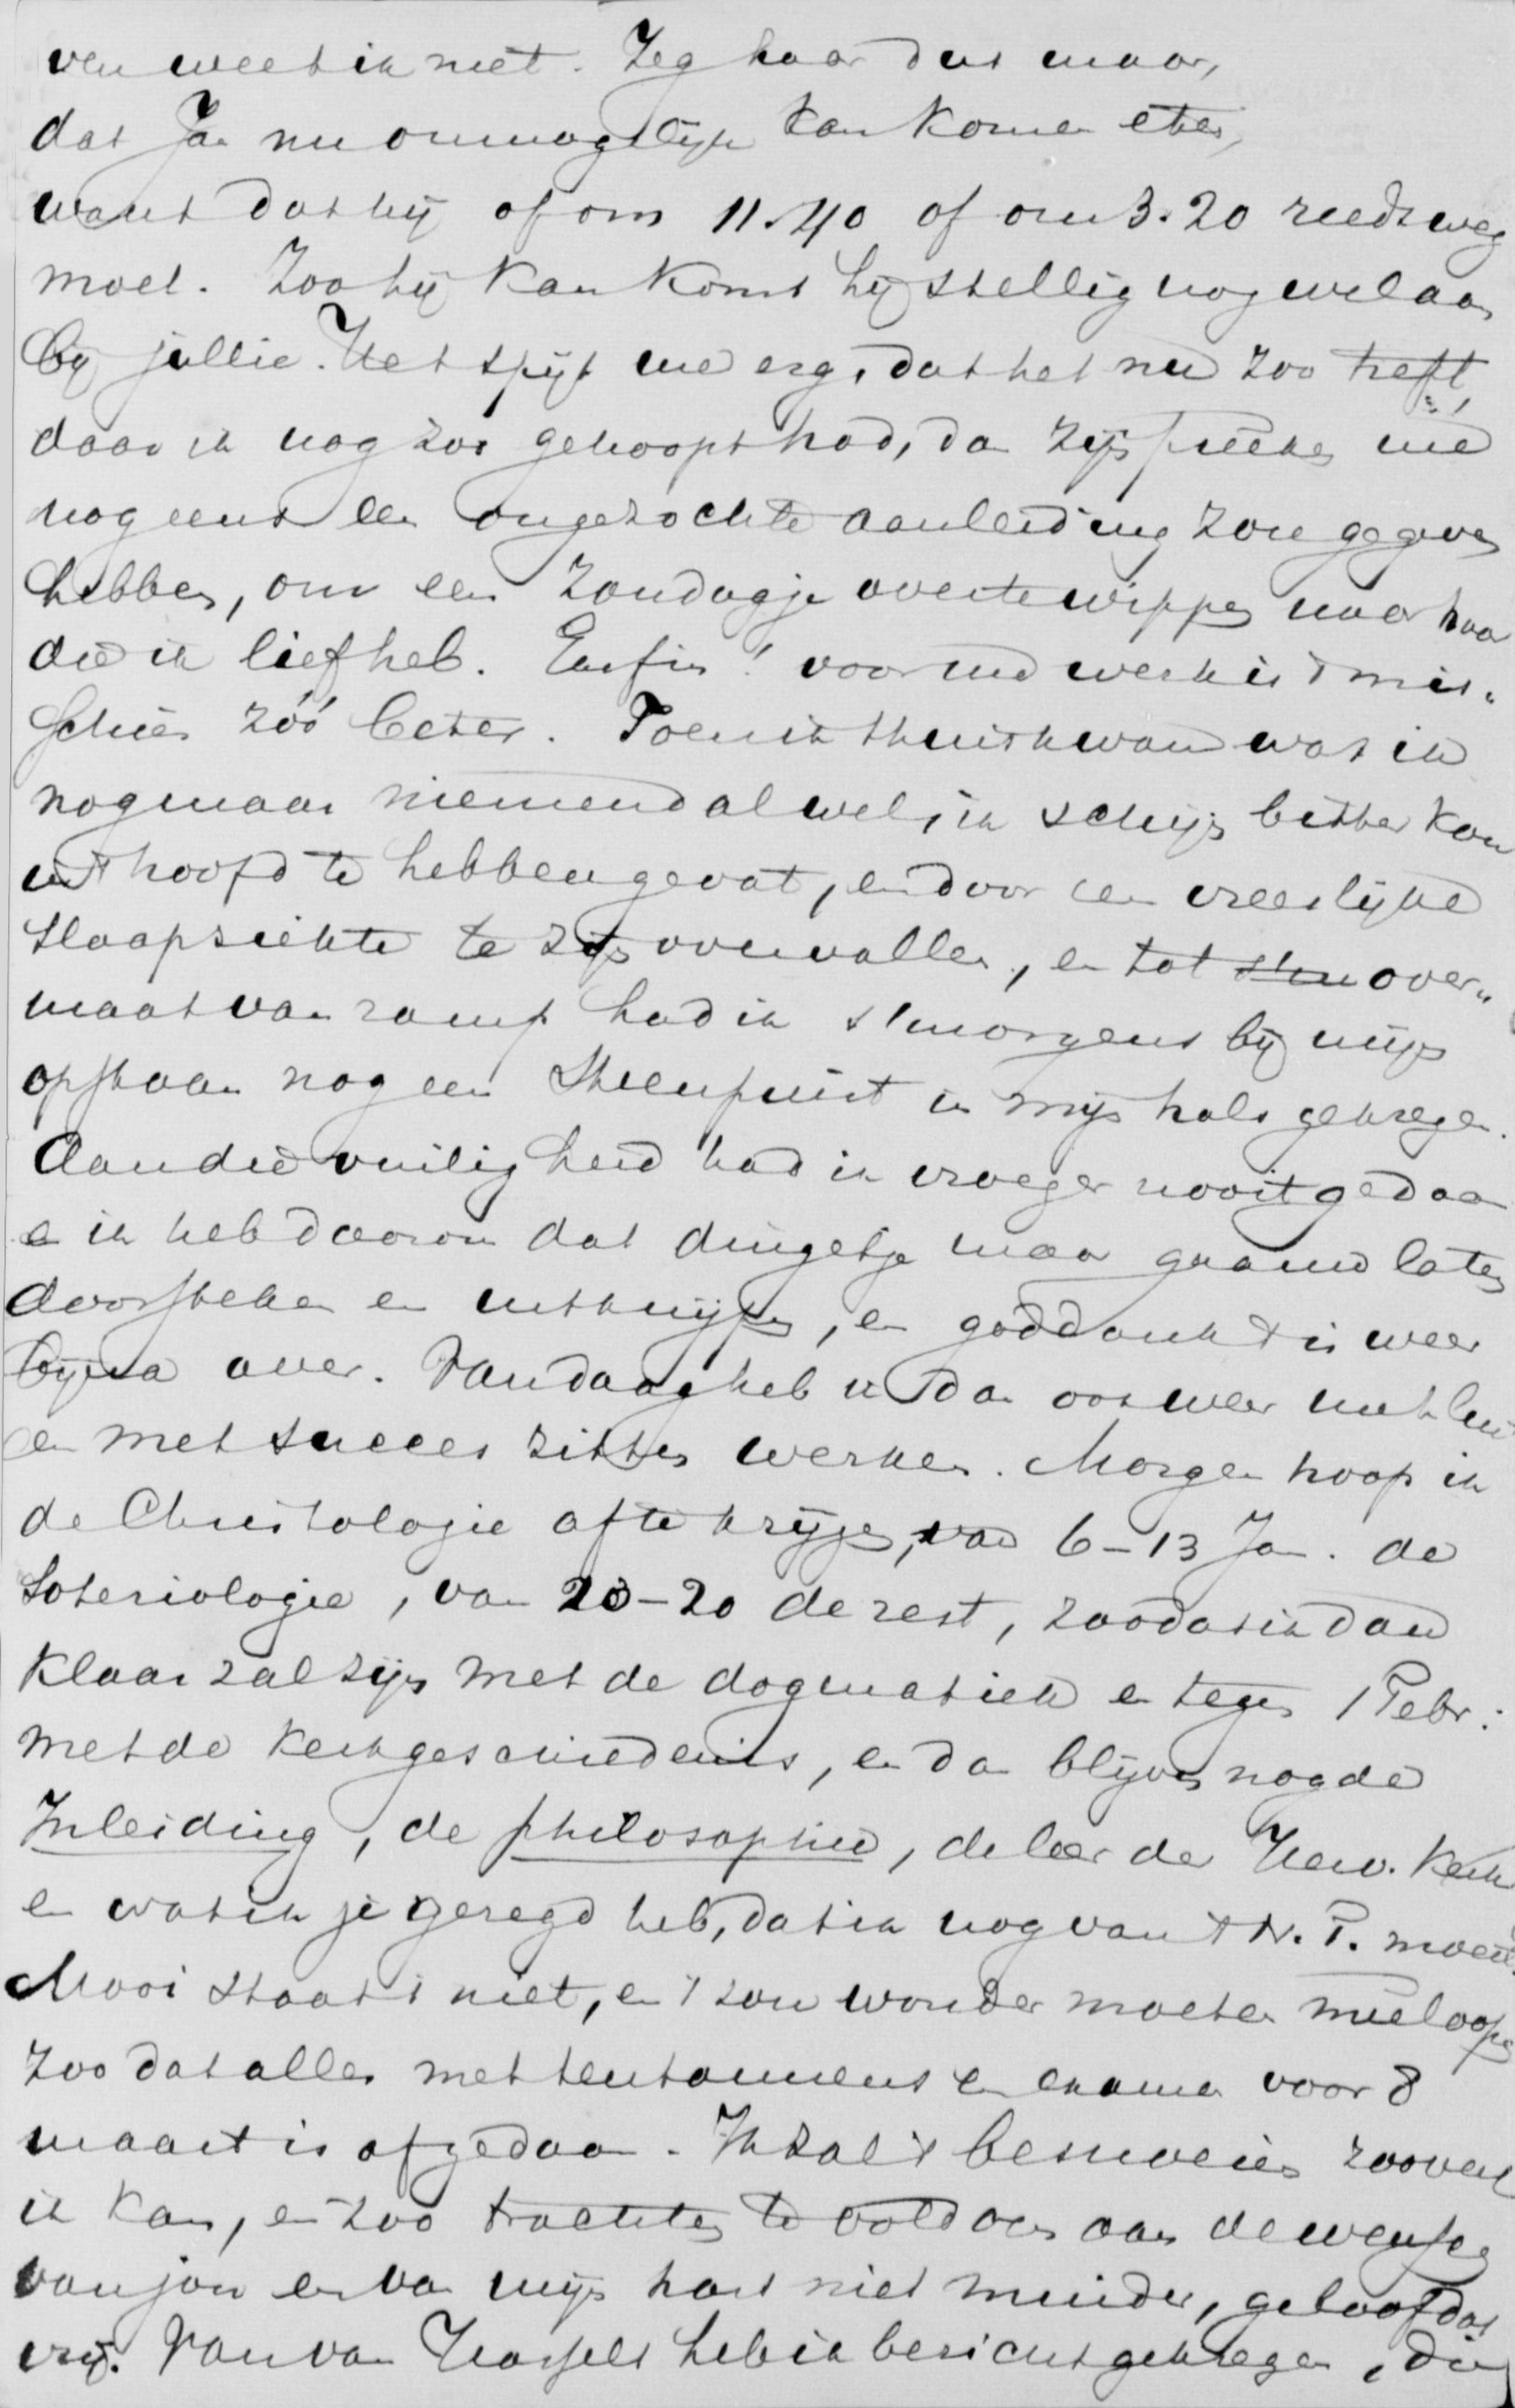 ven weet ik niet. Zeg haar dus maar,
dat Jan nu onmogelijk kan komen eten,
want dat hij of om 11.40 of om 3.20 reeds weg
moet. Zoo hij kan komt hij stellig nog wel aan
bij jullie. Het spijt me erg, dat het nu zoo treft
daar ik nog zoo gehoopt had, da zijn preeken me
nog eens een ongezochte aanleiding zou gegeven
hebben, om een Zondagje over te wippen naar haar
die ik liefheb. Enfin! voor me werk is 't mis-
schien zóó beter. Toen ik thuis kwam was ik
nog maar niemendal wel, ik schijn bitter kou
in 't hoofd te hebben gevat, en door een vreeslijke
slaapziekte te zijn overvallen, en tot over-
maat van ramp had ik 's morgens bij mijn
opstaan nog een steenpuist in mijn hals gekregen.
Aan die vuiligheid had ik vroeger nooit gedaan
en ik heb daarom dat dingetje maar gaauw laten
doorsteken en uitknijpen, en goddank 't is weer
bijna over. Vandaag heb ik dan ook weer met lust
en met succes zitten werken. Morgen hoop ik
de Christologie af te krijgen, van 6-13 Jan. de
Soteriologie, van 13-20 de rest, zoodat ik dan
klaar zal zijn met de dogmatiek en tegen 1 Febr:
met de kerkgeschiedenis, en dan blijven nog de
Inleiding, de philosophie, de leer der Herv. Kerk
en wat ik je gezegd heb, dat ik nog van 't N.T. moet.
Mooi staat 't niet, en 't zou wonder moeten meeloopen
zoo dat alles met tentamens en examen voor 8
maart is afgedaan. Ik zal 't besnoeien zooveel
ik kan, en zoo trachten te voldoen aan de wenschen
van jou en van mijn hart niet minder, geloof dat
vrij. Van van Hasselt heb ik bericht gekregen, die